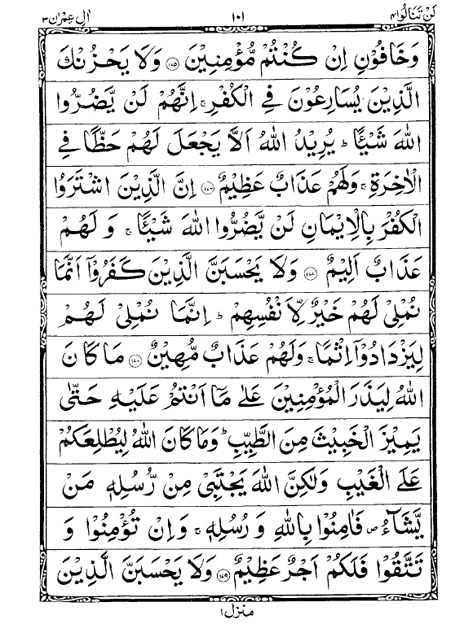 لَنْ تَنَالُوا۴ ١٠١ اٰلِ عِمْرٰن۳
وَخَافُوْنِ اِنْ كُنْتُمْ مُّؤْمِنِيْنَ ۝۱۷۵ وَلَا يَحْزُنْكَ
الَّذِيْنَ يُسَارِعُوْنَ فِى الْكُفْرِ ۚ اِنَّهُمْ لَنْ يَّضُرُّوا
اللّٰهَ شَيْـًٔا ؕ يُرِيْدُ اللّٰهُ اَلَّا يَجْعَلَ لَهُمْ حَظًّا فِى
الْاٰخِرَةِ ۚ وَلَهُمْ عَذَابٌ عَظِيْمٌ ۝۱۷۶ اِنَّ الَّذِيْنَ اشْتَرَوُا
الْكُفْرَ بِالْاِيْمَانِ لَنْ يَّضُرُّوا اللّٰهَ شَيْـًٔا ۚ وَلَهُمْ
عَذَابٌ اَلِيْمٌ ۝۱۷۷ وَلَا يَحْسَبَنَّ الَّذِيْنَ كَفَرُوْۤا اَنَّمَا
نُمْلِىْ لَهُمْ خَيْرٌ لِّاَنْفُسِهِمْ ؕ اِنَّمَا نُمْلِىْ لَهُمْ
لِيَزْدَادُوْۤا اِثْمًا ۚ وَلَهُمْ عَذَابٌ مُّهِيْنٌ ۝۱۷۸ مَا كَانَ
اللّٰهُ لِيَذَرَ الْمُؤْمِنِيْنَ عَلٰى مَاۤ اَنْتُمْ عَلَيْهِ حَتّٰى
يَمِيْزَ الْخَبِيْثَ مِنَ الطَّيِّبِ ؕ وَمَا كَانَ اللّٰهُ لِيُطْلِعَكُمْ
عَلَى الْغَيْبِ وَلٰكِنَّ اللّٰهَ يَجْتَبِىْ مِنْ رُّسُلِهٖ مَنْ
يَّشَآءُ ۪ فَاٰمِنُوْا بِاللّٰهِ وَرُسُلِهٖ ۚ وَاِنْ تُؤْمِنُوْا وَ
تَتَّقُوْا فَلَكُمْ اَجْرٌ عَظِيْمٌ ۝۱۷۹ وَلَا يَحْسَبَنَّ الَّذِيْنَ
منزل۱